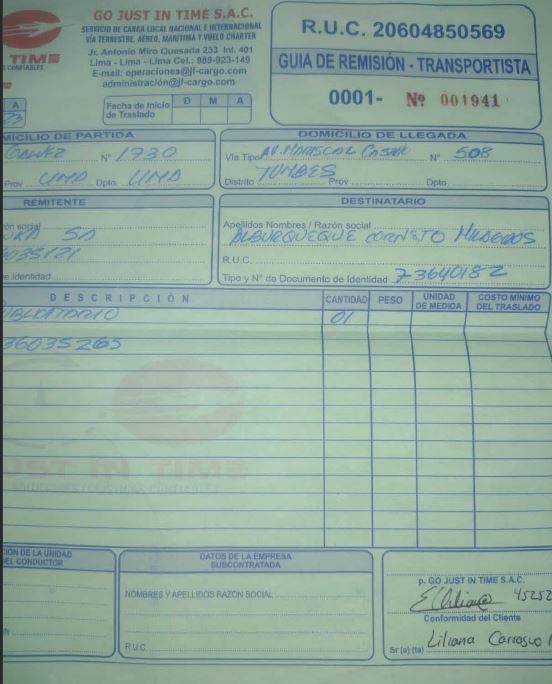 GO JUST IN TIME S.A.C.
SERVICIO DE CARGA LOCAL NACIONAL E INTERNACIONAL
VÍA TERRESTRE, AÉREO, MARÍTIMA Y VUELO CHARTER
Jr. Antonio Miro Quesada 233 Int. 401
Lima - Lima - Lima Cel.: 989-923-149
E-mail: operaciones@jf-cargo.com
administración@jf-cargo.com
TIME
S CONFIABLES
R.U.C. 20604850569
GUIA DE REMISIÓN - TRANSPORTISTA
0001- Nº 001941
A
23
Fecha de Inicio de Traslado
D M A
MICILIO DE PARTIDA
Nº 1930
Prov LIMA Dpto. LIMA
DOMICILIO DE LLEGADA
Vía Tipo AV. MARISCAL Nº 508
Distrito TUMBES Prov Dpto.
REMITENTE
ón social
SA
6035121
e Identidad
DESTINATARIO
Apellidos Nombres / Razón social
ALBURQUEQUE CORNEJO MILAGROS
R.U.C.
Tipo y Nº de Documento de Identidad 73640182
DESCRIPCIÓN CANTIDAD PESO UNIDAD DE MEDIDA COSTO MÍNIMO DEL TRASLADO
01
36035265
JUST IN TIME
SOLUCIONES LOGISTICAS CONFIABLES
CIÓN DE LA UNIDAD
DEL CONDUCTOR
DATOS DE LA EMPRESA
SUBCONTRATADA
NOMBRES Y APELLIDOS RAZON SOCIAL
R.U.C.
p. GO JUST IN TIME S.A.C.
45252
Conformidad del Cliente
Sr (a) (ta) Liliana Carrasco